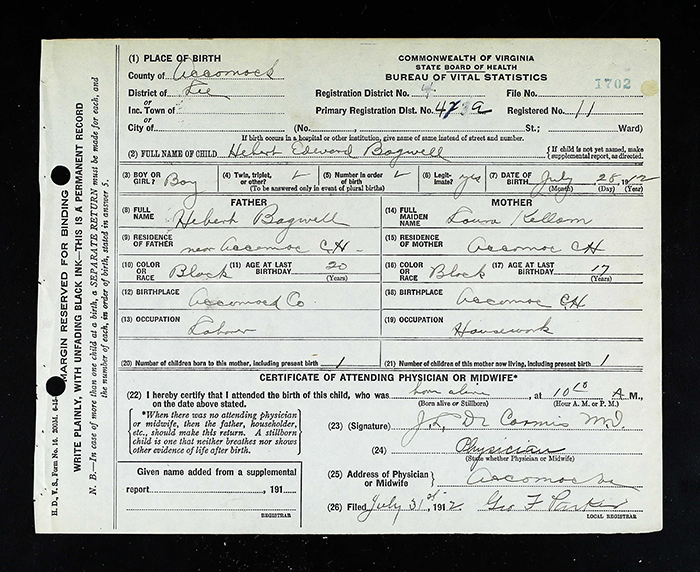 (1) PLACE OF BIRTH
County of Accomack
District of Lee
or
Inc. Town of
or
City of (No. , St.; Ward)
COMMONWEALTH OF VIRGINIA
STATE BOARD OF HEALTH
BUREAU OF VITAL STATISTICS
1702
Registration District No. File No.
Primary Registration Dist. No. Registered No. 11
If birth occurs in a hospital or other institution, give name of same instead of street and number.
(2) FULL NAME OF CHILD Hebert Edward Bagwell
{If child is not yet named, make supplemental report, as directed.
(3) BOY OR GIRL? Boy
(4) Twin, triplet, or other?
(5) Number in order of birth
(To be answered only in event of plural births)
(6) Legitimate? yes
(7) DATE OF BIRTH July 28, 1912
(Month) (Day) (Year)
FATHER
(8) FULL NAME Hebert Bagwell
(9) RESIDENCE OF FATHER near Accomac CH
(10) COLOR OR RACE Black
(11) AGE AT LAST BIRTHDAY 20
(Years)
(12) BIRTHPLACE Accomack Co.
(13) OCCUPATION Laborer
MOTHER
(14) FULL MAIDEN NAME Laura Kellam
(15) RESIDENCE OF MOTHER Accomac CH
(16) COLOR OR RACE Black
(17) AGE AT LAST BIRTHDAY 17
(Years)
(18) BIRTHPLACE Accomac CH
(19) OCCUPATION Housework
(20) Number of children born to this mother, including present birth 1
(21) Number of children of this mother now living, including present birth 1
CERTIFICATE OF ATTENDING PHYSICIAN OR MIDWIFE*
(22) I hereby certify that I attended the birth of this child, who was born alive, at 10 A. M.,
on the date above stated. (Born alive or Stillborn) (Hour A. M. or P. M.)
*When there was no attending physician
or midwife, then the father, householder,
etc., should make this return. A stillborn
child is one that neither breathes nor shows
other evidence of life after birth.
(23) (Signature) M.D.
(24) Physician
(State whether Physician or Midwife)
(25) Address of Physician or Midwife
Given name added from a supplemental
report , 191
REGISTRAR
(26) Filed July 31st, 1912 Geo F Parker
LOCAL REGISTRAR
MARGIN RESERVED FOR BINDING
WRITE PLAINLY, WITH UNFADING BLACK INK—THIS IS A PERMANENT RECORD
N. B.—In case of more than one child at a birth, a SEPARATE RETURN must be made for each, and
the number of each, in order of birth, stated in answer 5.